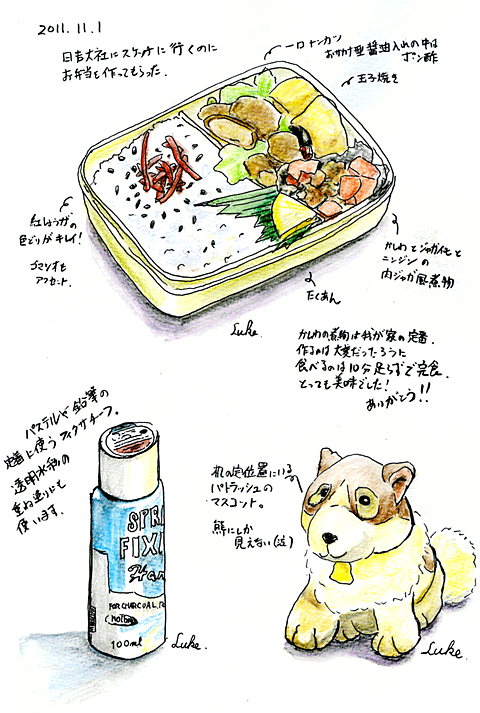 2011.11.1
日吉大社にスケッチに行くのに
お弁当を作ってもらった。
一口トンカツ
おサカナ型醤油入れの中は
ポン酢
玉子焼き
紅しょうがの
色どりがキレイ!
ゴマシオも
アクセント。
かしわとジャガイモと
ニンジンの
肉ジャガ風煮物
たくあん
Luke.
かしわの煮物は我が家の定番。
作るのは大変だったろうに
食べるのは10分足らずで完食。
とっても美味でした!
ありがとう!!
パステルや鉛筆の
定着に使うフィクサチーフ。
透明水彩の
重ね塗りにも
使います。
SPR
FIXA
Han
FOR CHARCOAL, P
NOTE
100ml
Luke.
机の定位置にいる
パトラッシュの
マスコット。
熊にしか
見えない(泣)
Luke.